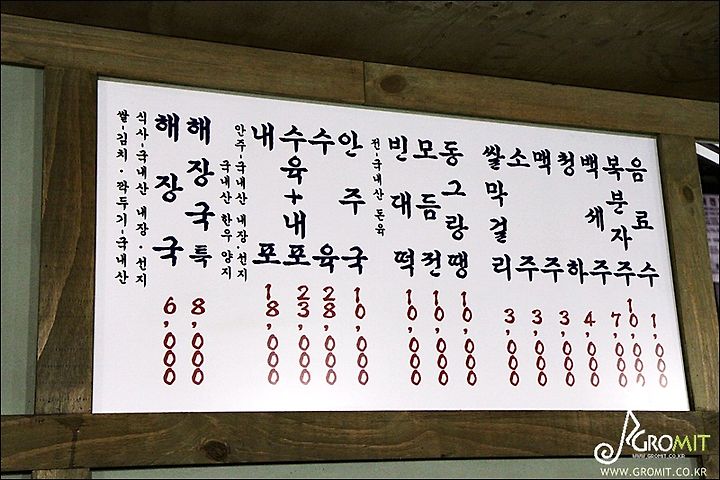 음료수 1,000
복분자주 10,000
백세주 7,000
청하 4,000
맥주 3,000
소주 3,000
쌀막걸리 3,000
동그랑땡 10,000
모듬전 10,000
빈대떡 10,000
전-국내산 돈육
안주국 10,000
수육 28,000
수육+내포 23,000
내포 18,000
안주-국내산 내장·선지
국내산 한우 양지
해장국특 8,000
해장국 6,000
식사-국내산 내장·선지
쌀-김치·깍두기-국내산
GROMIT
WWW.GROMIT.CO.KR
WWW.GROMIT.CO.KR